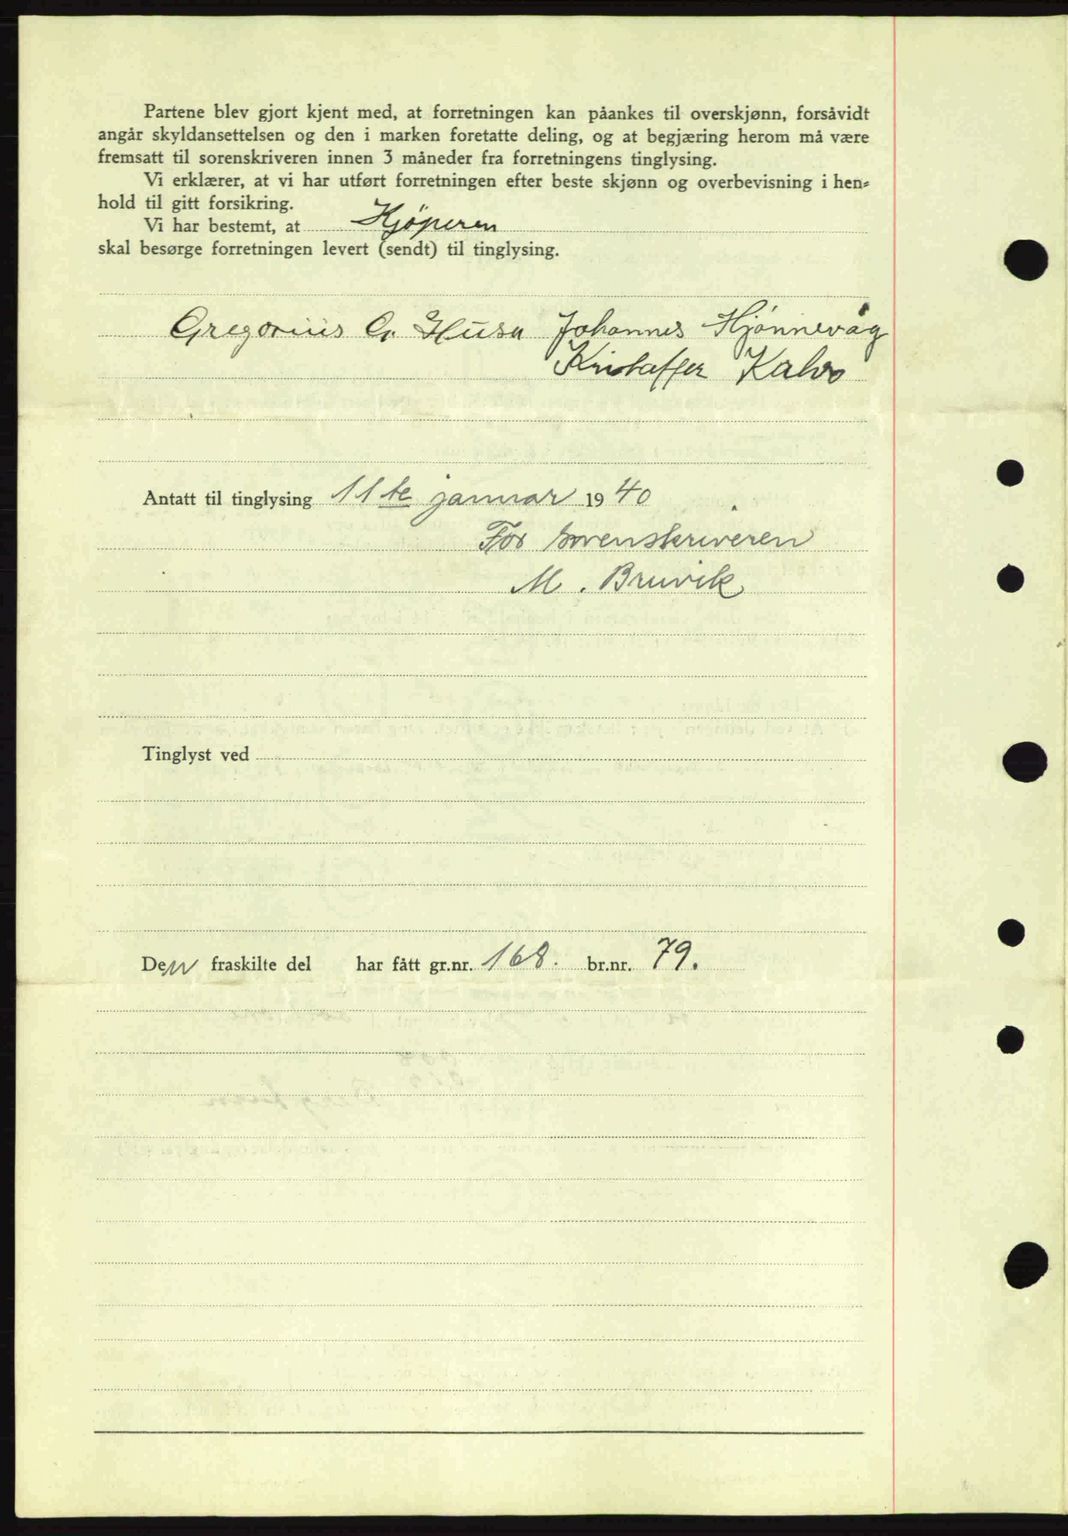 Partene blev gjort kjent med, at forretningen kan påankes til overskjønn, forsåvidt
angår skyldansettelsen og den i marken foretatte deling, og at begjæring herom må være
fremsatt til sorenskriveren innen 3 måneder fra forretningens tinglysing.
Vi erklærer, at vi har utført forretningen efter beste skjønn og overbevisning i hen-
hold til gitt forsikring.
Vi har bestemt, at Kjöperen
skal besørge forretningen levert (sendt) til tinglysing.
Gregorius G. Husa Johannes Hjönnevåg
Kristoffer Kalvo
Antatt til tinglysing 11te januar 1940
For sorenskriveren
M. Bruvik
Tinglyst ved
Den fraskilte del har fått gr.nr. 168. br.nr. 79.